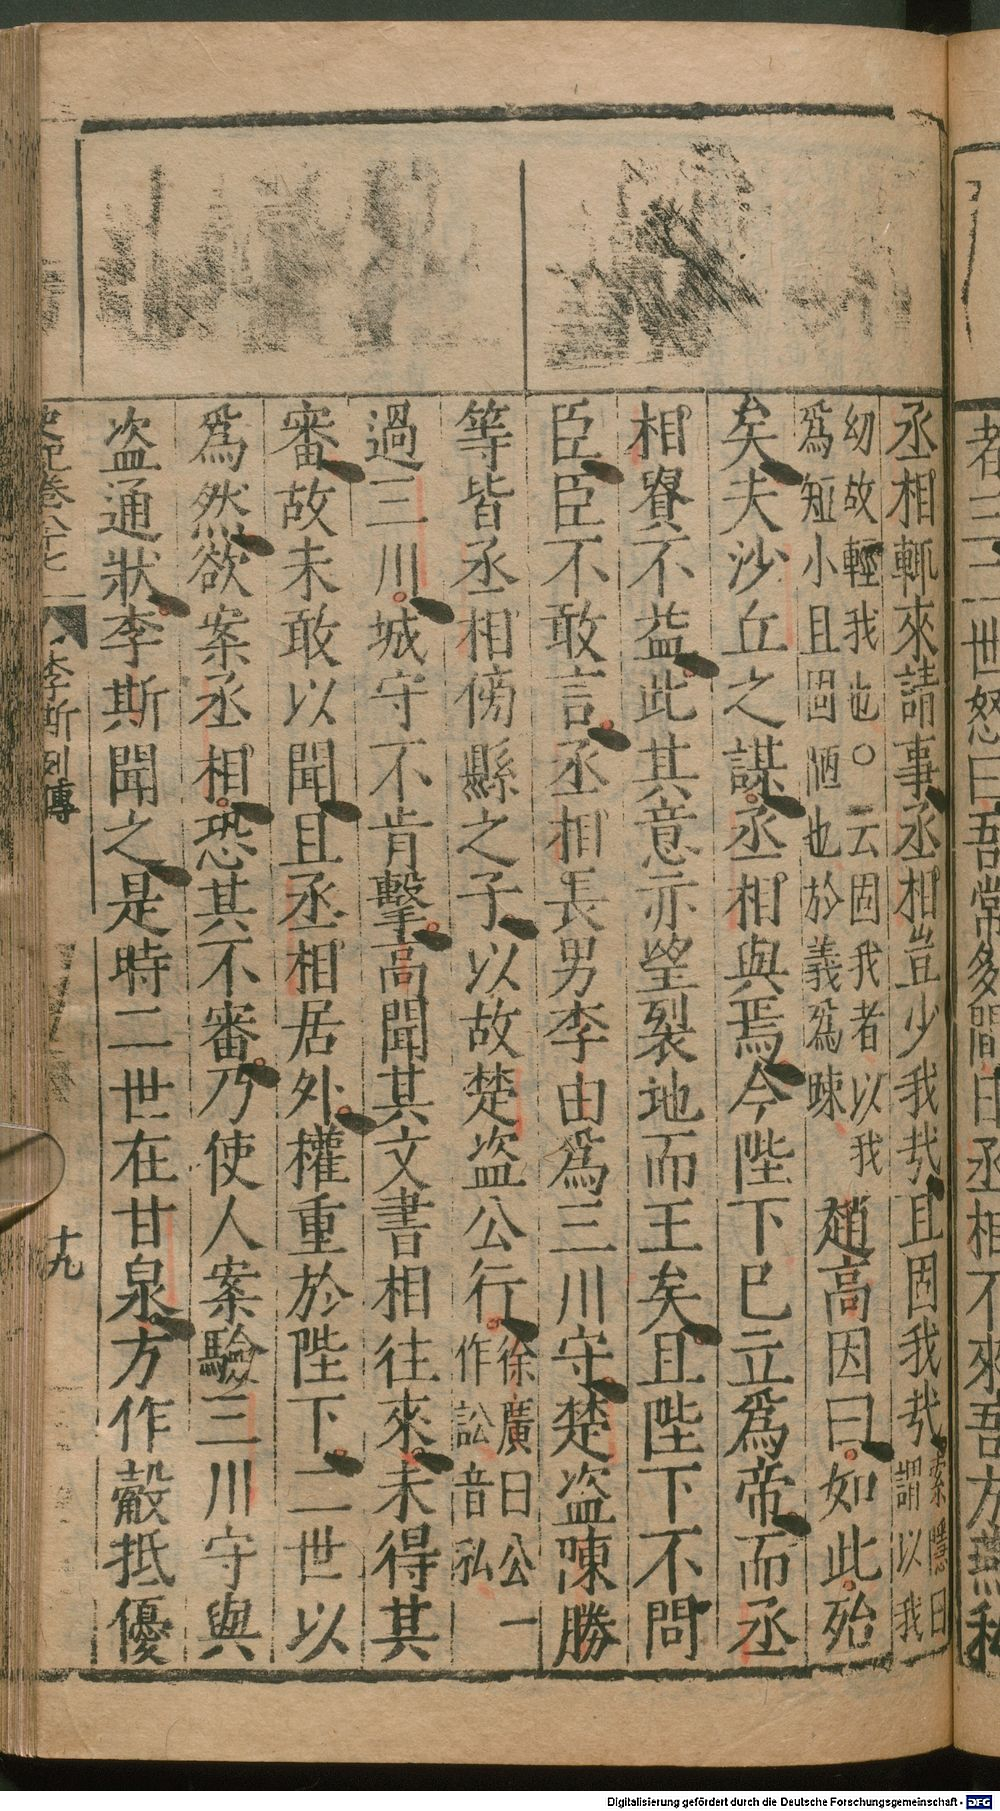 者三二世怒曰吾常多閒日丞相不來吾方燕私
丞相輒來請事丞相豈少我㢤且固我㢤索隱曰謂以我
幼故輕我也○云固我者以我
爲短小且固陋也於義爲疎
趙高因曰如此殆
矣夫沙丘之謀丞相與焉今陛下已立爲帝而丞
相貴不益此其意亦望裂地而王矣且陛下不問
臣臣不敢言丞相長男李由爲三川守楚盜陳勝
等皆丞相傍縣之子以故楚盜公行徐廣曰公一
作訟音㳒
過三川城守不肯擊高聞其文書相往來未得其
審故未敢以聞且丞相居外權重於陛下二世以
爲然欲案丞相恐其不審乃使人案驗三川守與
盜通狀李斯聞之是時二世在甘泉方作觳抵優
史記卷八十七
李斯列傳
十九
Digitalisierung gefördert durch die Deutsche Forschungsgemeinschaft - DFG